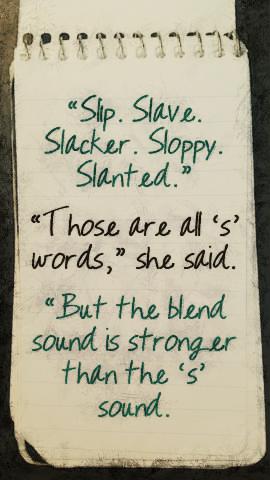 “Slip. Slave.
Slacker. Sloppy.
Slanted.”
“Those are all ‘s’
words,” she said.
“But the blend
sound is stronger
than the ‘s’
sound.